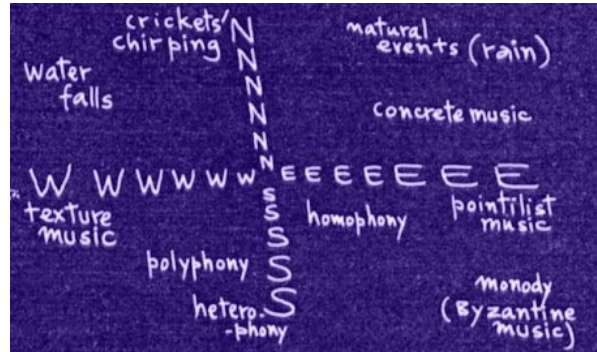 crickets'
chirping
N
N
N
N
N
N
natural
events (rain)
water
falls
concrete music
W W W W W W
E E E E E E E
S
S
S
S
S
texture
music
homophony
pointilist
music
polyphony
hetero-
-phony
monody
(Byzantine
music)